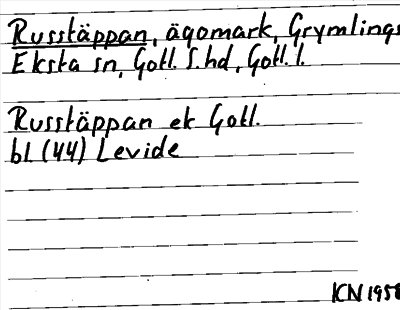 Russtäppan, ägomark, Grymlings
Eksta sn, Gotl. S. hd, Gotl. l.
Russtäppan ek Gotl.
bl (44) Levide
KCN 1958